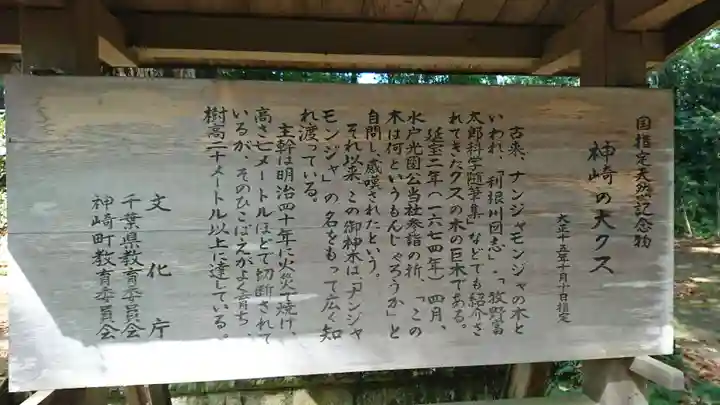 国指定天然記念物
神崎の大クス
大正十五年十月十日指定
古来、ナンジャモンジャの木と
いわれ、「利根川図志」・「牧野富
太郎科学随筆集」などでも紹介さ
れてきたクスの木の巨木である。
延宝二年(一六七四年)四月、
水戸光圀公当社参詣の折、「この
木は何というもんじゃろうか」と
自問し、感嘆されたという。
それ以来、この御神木は、「ナンジャ
モンジャ」の名をもって広く知
れ渡っている。
主幹は明治四十年に火災で焼け、
高さ七メートルほどで切断されて
いるが、そのひこばえがよく育ち、
樹高二十メートル以上に達している。
文化庁
千葉県教育委員会
神崎町教育委員会